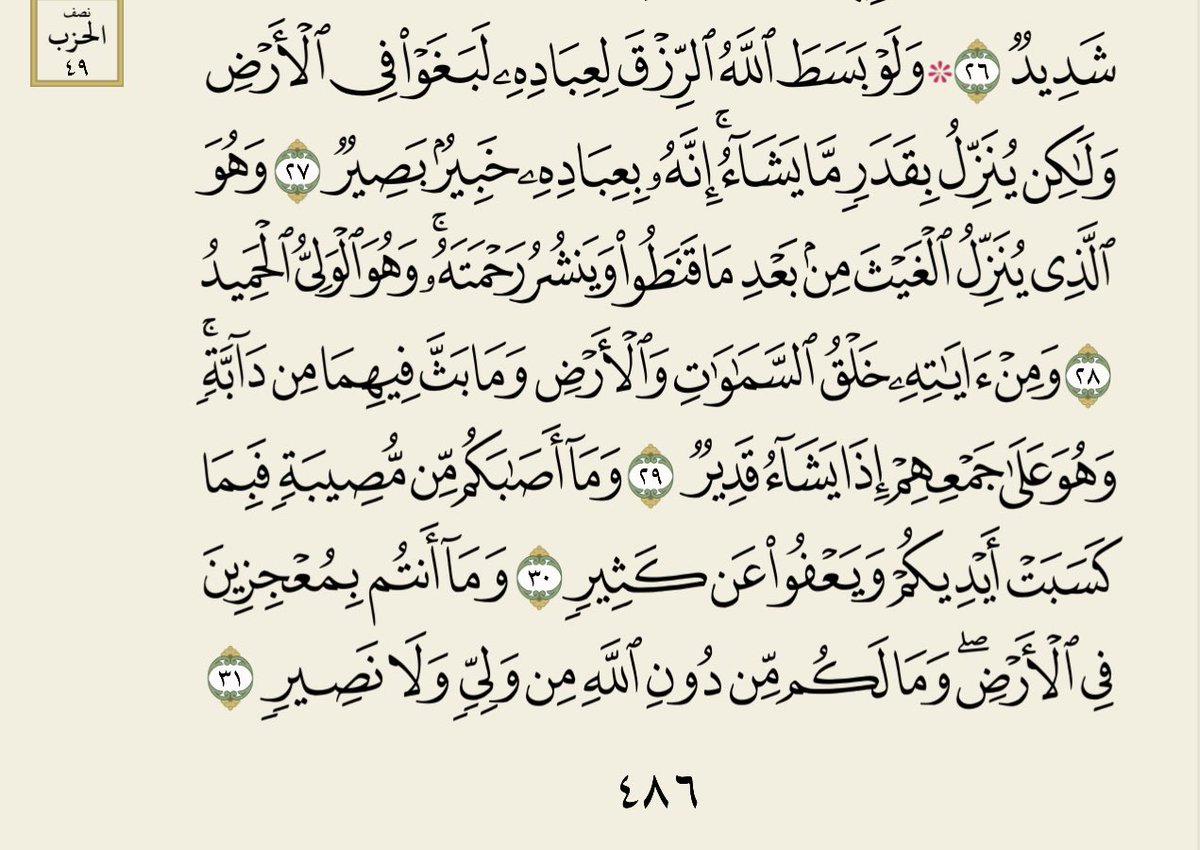 نصف
الحزب
٤٩
شَدِيدٌ ٢٦ * وَلَوْ بَسَطَ ٱللَّهُ ٱلرِّزْقَ لِعِبَادِهِۦ لَبَغَوْا۟ فِى ٱلْأَرْضِ
وَلَـٰكِن يُنَزِّلُ بِقَدَرٍ مَّا يَشَآءُ ۚ إِنَّهُۥ بِعِبَادِهِۦ خَبِيرٌۢ بَصِيرٌ ٢٧ وَهُوَ
ٱلَّذِى يُنَزِّلُ ٱلْغَيْثَ مِنۢ بَعْدِ مَا قَنَطُوا۟ وَيَنشُرُ رَحْمَتَهُۥ ۚ وَهُوَ ٱلْوَلِىُّ ٱلْحَمِيدُ
٢٨ وَمِنْ ءَايَـٰتِهِۦ خَلْقُ ٱلسَّمَـٰوَٰتِ وَٱلْأَرْضِ وَمَا بَثَّ فِيهِمَا مِن دَآبَّةٍ ۚ
وَهُوَ عَلَىٰ جَمْعِهِمْ إِذَا يَشَآءُ قَدِيرٌ ٢٩ وَمَآ أَصَـٰبَكُم مِّن مُّصِيبَةٍ فَبِمَا
كَسَبَتْ أَيْدِيكُمْ وَيَعْفُوا۟ عَن كَثِيرٍ ٣٠ وَمَآ أَنتُم بِمُعْجِزِينَ
فِى ٱلْأَرْضِ ۖ وَمَا لَكُم مِّن دُونِ ٱللَّهِ مِن وَلِىٍّ وَلَا نَصِيرٍ ٣١
٤٨٦